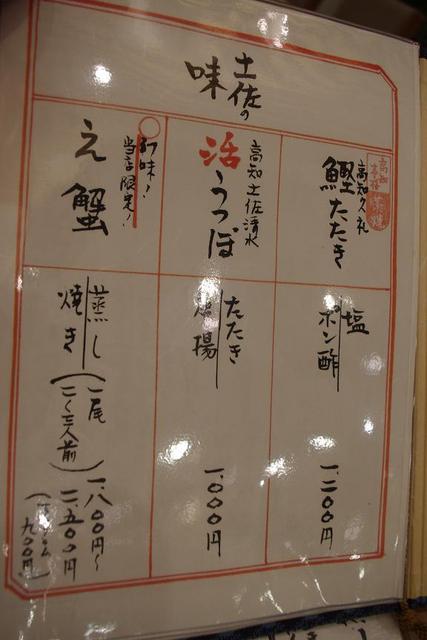 土佐の
味
高知久礼
鰹たたき
塩
ポン酢
一、二〇〇円
高知土佐清水
活うつぼ
たたき
唐揚
一、〇〇〇円
珍味!
当店限定!
え蟹
蒸し
焼き
一尾
(二〜三人前)
一、八〇〇円〜
二、五〇〇円
九〇〇円)